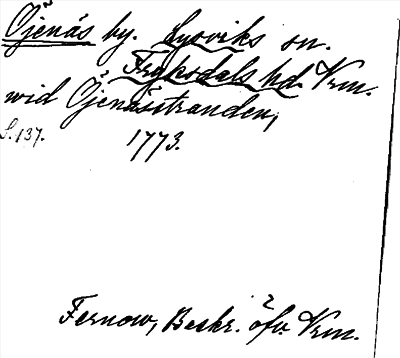 Öjenäs by. Lysviks sn.
Fryksdals hd. Vrm.
wid Öjenässtranden,
S. 137. 1773.
Fernow, Beskr. öfv. Vrm.